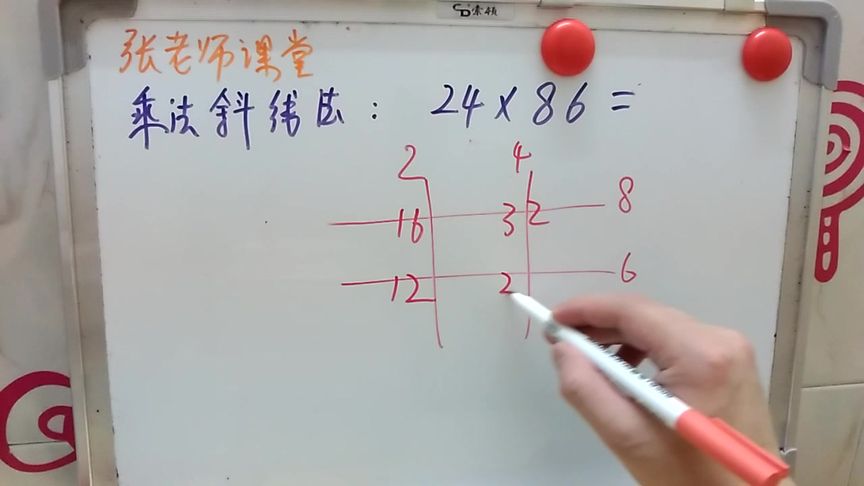 张老师课堂
乘法斜线法： 24×86=
2 4
16 32 8
12 2 6